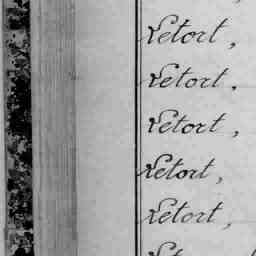 Retort,
Retort.
Retort,
Retort,
Retort,